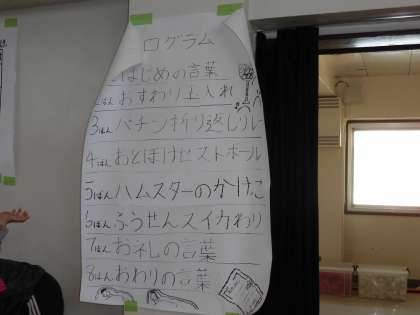 ログラム
はじめの言葉
おすわり玉入れ
3ばん パチン折り返しリレ
4ばん おとぼけゼストボール
5ばん ハムスターのかけこ
6ばん ふうせんスイカわり
7ばん お礼の言葉
8ばん おわりの言葉